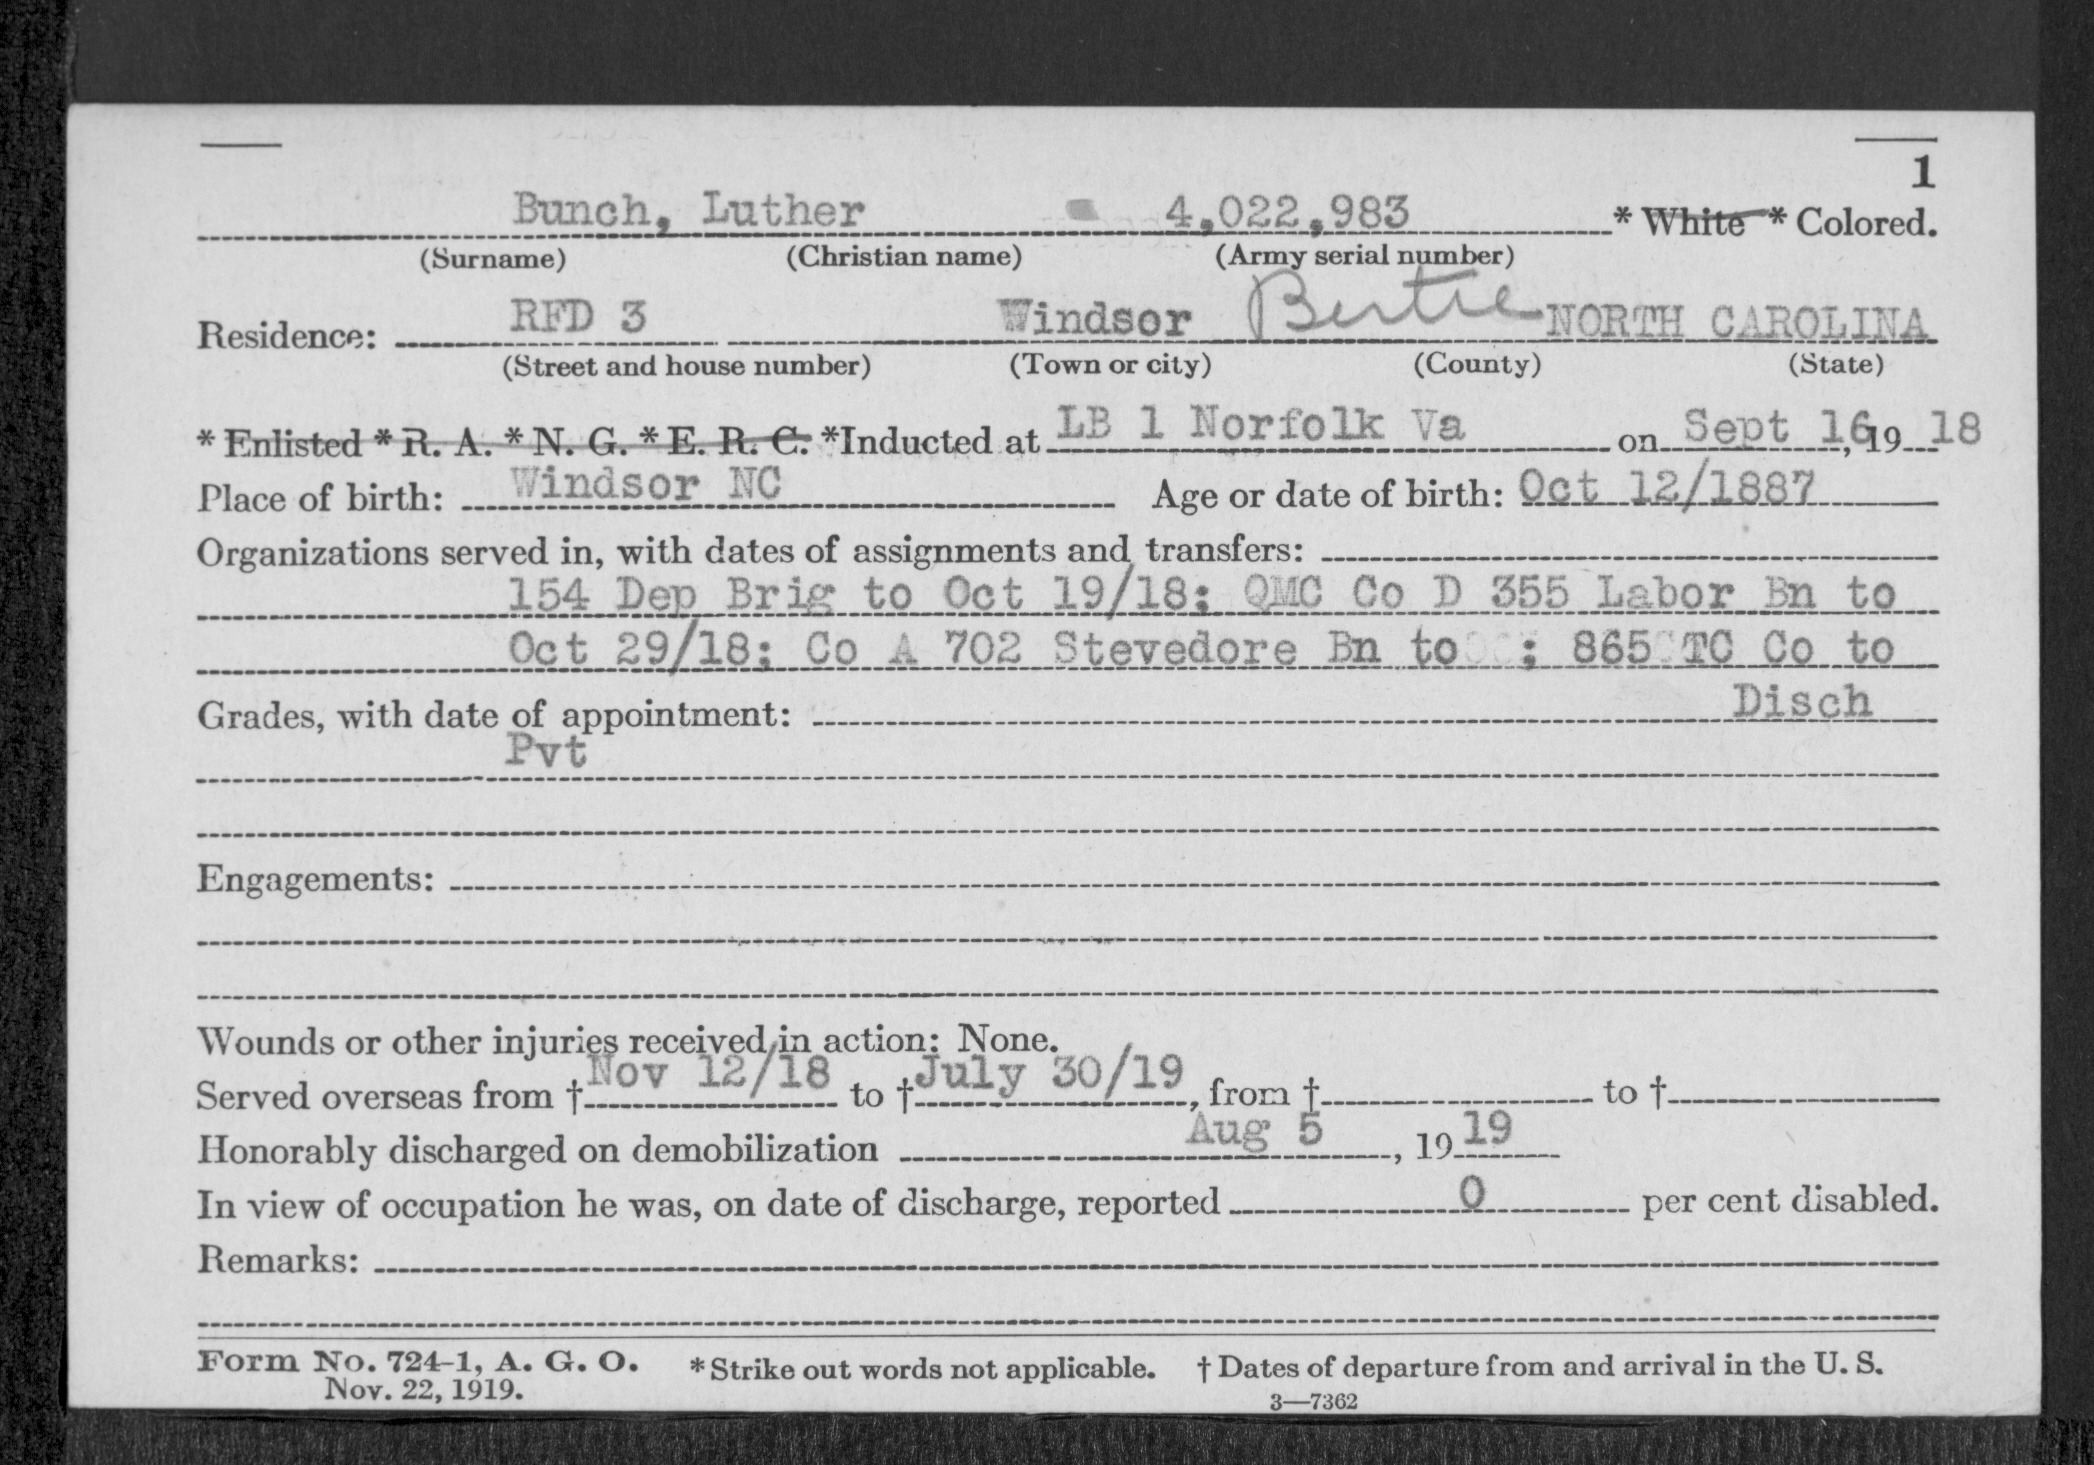 1
Bunch, Luther 4,022,983 * White * Colored.
(Surname) (Christian name) (Army serial number)
Residence: RFD 3 Windsor Bertie NORTH CAROLINA
(Street and house number) (Town or city) (County) (State)
* Enlisted * R. A. * N. G. * E. R. C. *Inducted at LB 1 Norfolk Va on Sept 16, 19 18
Place of birth: Windsor NC Age or date of birth: Oct 12/1887
Organizations served in, with dates of assignments and transfers:
154 Dep Brig to Oct 19/18; QMC Co D 355 Labor Bn to
Oct 29/18; Co A 702 Stevedore Bn to ; 865 TC Co to
Disch
Grades, with date of appointment:
Pvt
Engagements:
Wounds or other injuries received in action: None.
Served overseas from † Nov 12/18 to † July 30/19, from † to †
Honorably discharged on demobilization Aug 5, 19 19
In view of occupation he was, on date of discharge, reported 0 per cent disabled.
Remarks:
Form No. 724-1, A. G. O. * Strike out words not applicable. † Dates of departure from and arrival in the U. S.
Nov. 22, 1919. 3—7362